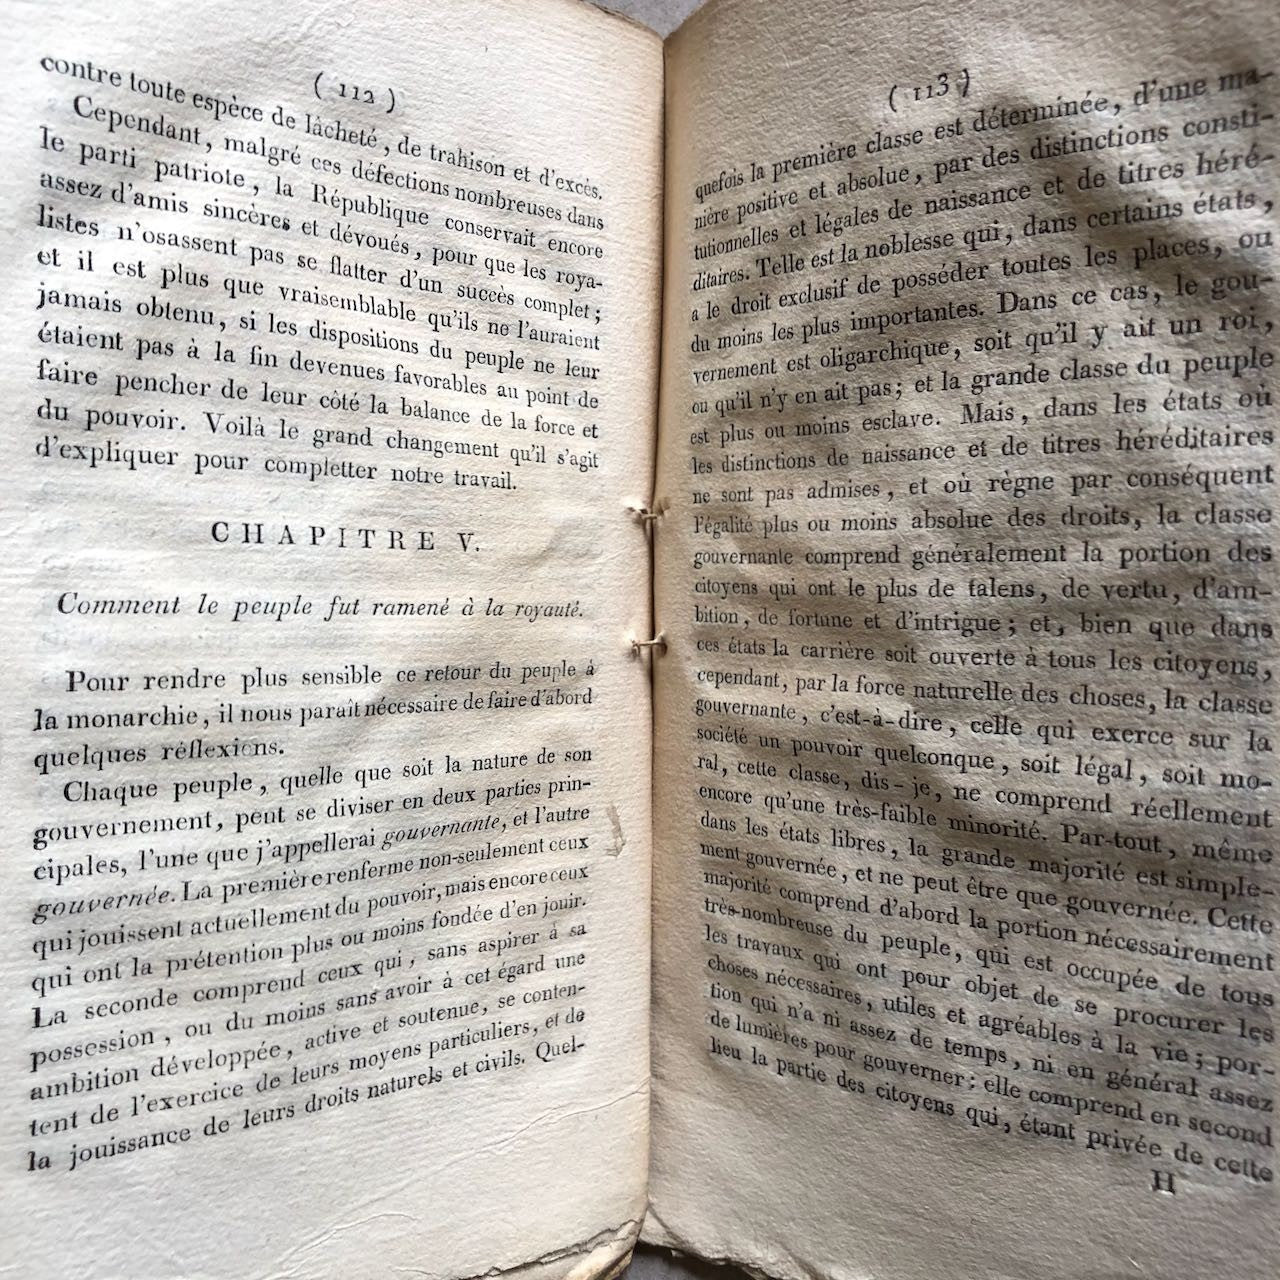 ( 112 )
contre toute espèce de lâcheté, de trahison et d'excès.
Cependant, malgré ces défections nombreuses dans
le parti patriote, la République conservait encore
assez d'amis sincères et dévoués, pour que les roya-
listes n'osassent pas se flatter d'un succès complet;
et il est plus que vraisemblable qu'ils ne l'auraient
jamais obtenu, si les dispositions du peuple ne leur
étaient pas à la fin devenues favorables au point de
faire pencher de leur côté la balance de la force et
du pouvoir. Voilà le grand changement qu'il s'agit
d'expliquer pour completter notre travail.
CHAPITRE V.
Comment le peuple fut ramené à la royauté.
Pour rendre plus sensible ce retour du peuple à
la monarchie, il nous paraît nécessaire de faire d'abord
quelques réflexions.
Chaque peuple, quelle que soit la nature de son
gouvernement, peut se diviser en deux parties prin-
cipales, l'une que j'appellerai gouvernante, et l'autre
gouvernée. La première renferme non-seulement ceux
qui jouissent actuellement du pouvoir, mais encore ceux
qui ont la prétention plus ou moins fondée d'en jouir.
La seconde comprend ceux qui, sans aspirer à sa
possession, ou du moins sans avoir à cet égard une
ambition développée, active et soutenue, se conten-
tent de l'exercice de leurs moyens particuliers, et de
la jouissance de leurs droits naturels et civils. Quel-
( 113 )
quefois la première classe est déterminée, d'une ma-
nière positive et absolue, par des distinctions consti-
tutionnelles et légales de naissance et de titres héré-
ditaires. Telle est la noblesse qui, dans certains états,
a le droit exclusif de posséder toutes les places, ou
du moins les plus importantes. Dans ce cas, le gou-
vernement est oligarchique, soit qu'il y ait un roi,
ou qu'il n'y en ait pas; et la grande classe du peuple
est plus ou moins esclave. Mais, dans les états où
les distinctions de naissance et de titres héréditaires
ne sont pas admises, et où règne par conséquent
l'égalité plus ou moins absolue des droits, la classe
gouvernante comprend généralement la portion des
citoyens qui ont le plus de talens, de vertu, d'am-
bition, de fortune et d'intrigue; et, bien que dans
ces états la carrière soit ouverte à tous les citoyens,
cependant, par la force naturelle des choses, la classe
gouvernante, c'est-à-dire, celle qui exerce sur la
société un pouvoir quelconque, soit légal, soit mo-
ral, cette classe, dis-je, ne comprend réellement
encore qu'une très-faible minorité. Par-tout, même
dans les états libres, la grande majorité est simple-
ment gouvernée, et ne peut être que gouvernée. Cette
majorité comprend d'abord la portion nécessairement
très-nombreuse du peuple, qui est occupée de tous
les travaux qui ont pour objet de se procurer les
choses nécessaires, utiles et agréables à la vie; por-
tion qui n'a ni assez de temps, ni en général assez
de lumières pour gouverner: elle comprend en second
lieu la partie des citoyens qui, étant privée de cette
H